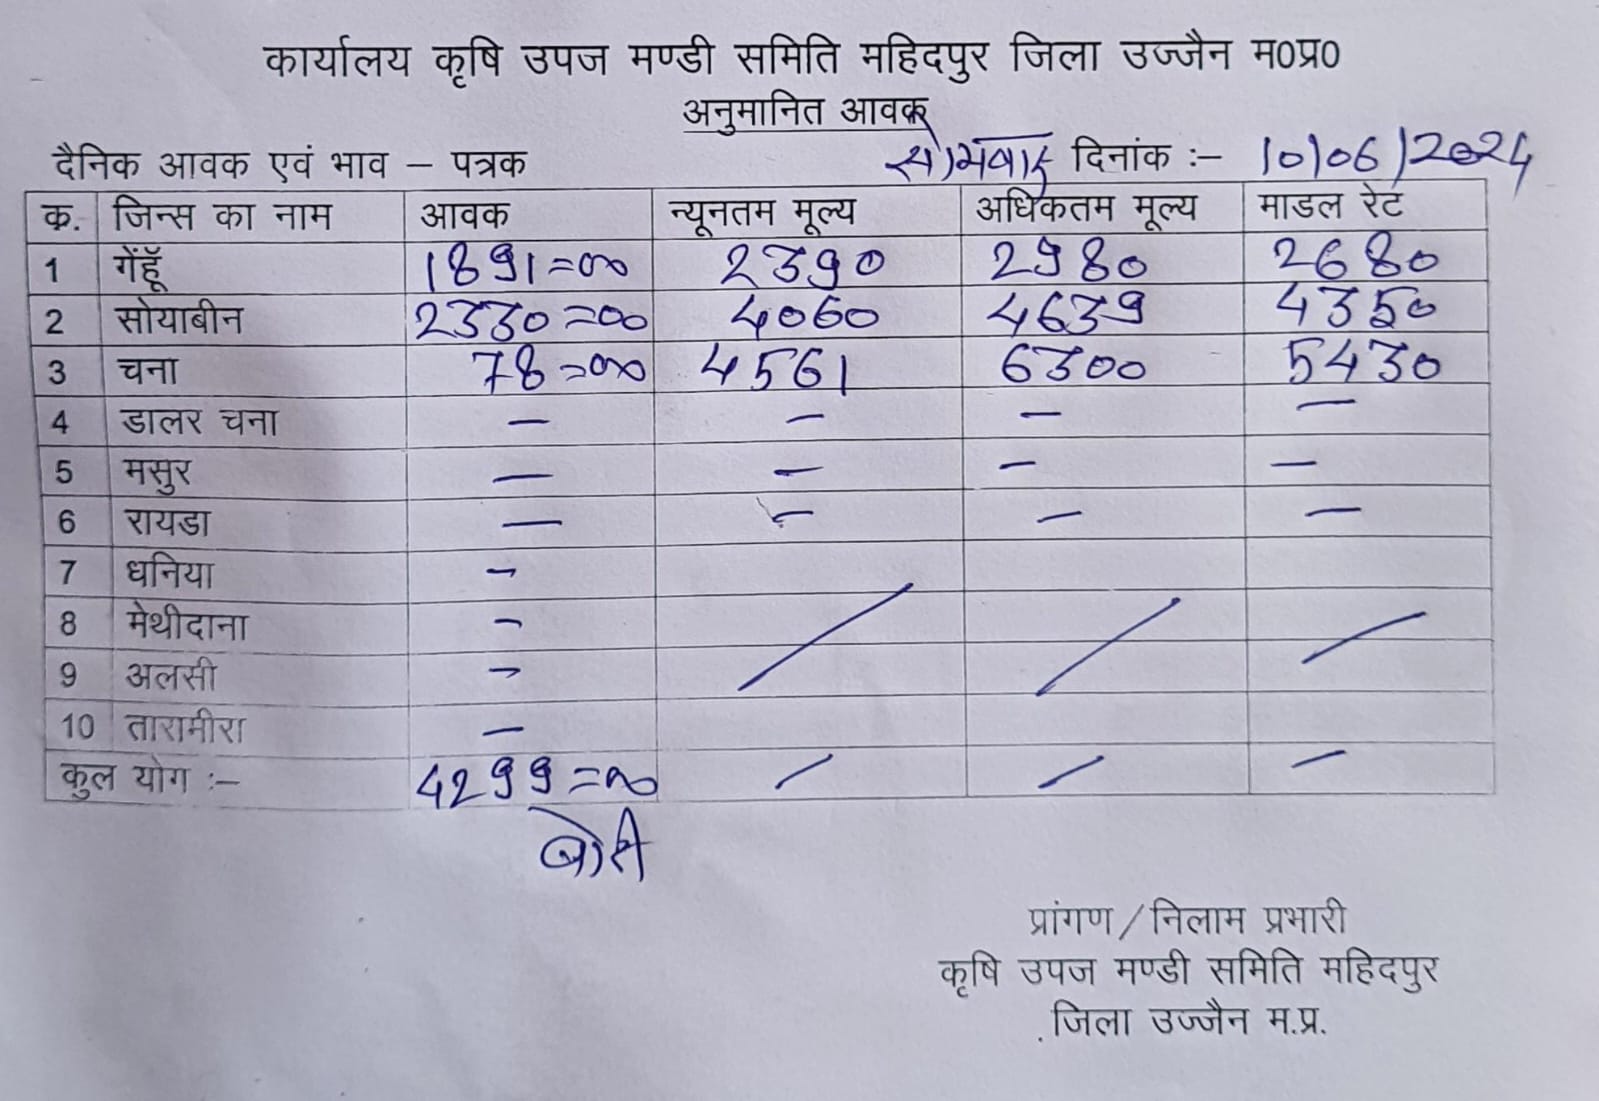 कार्यालय कृषि उपज मण्डी समिति महिदपुर जिला उज्जैन म0प्र0
अनुमानित आवक
दैनिक आवक एवं भाव – पत्रक सोमवार दिनांक :– 10/06/2024
क्र. जिन्स का नाम आवक न्यूनतम मूल्य अधिकतम मूल्य माडल रेट
1 गेंहूँ 1891=00 2390 2980 2680
2 सोयाबीन 2330=00 4060 4639 4350
3 चना 78=00 4561 6300 5430
4 डालर चना – – – –
5 मसुर – – – –
6 रायडा – – – –
7 धनिया –
8 मेथीदाना – / / /
9 अलसी –
10 तारामीरा –
कुल योग :– 4299=00 / / /
बोरी
प्रांगण/निलाम प्रभारी
कृषि उपज मण्डी समिति महिदपुर
जिला उज्जैन म.प्र.